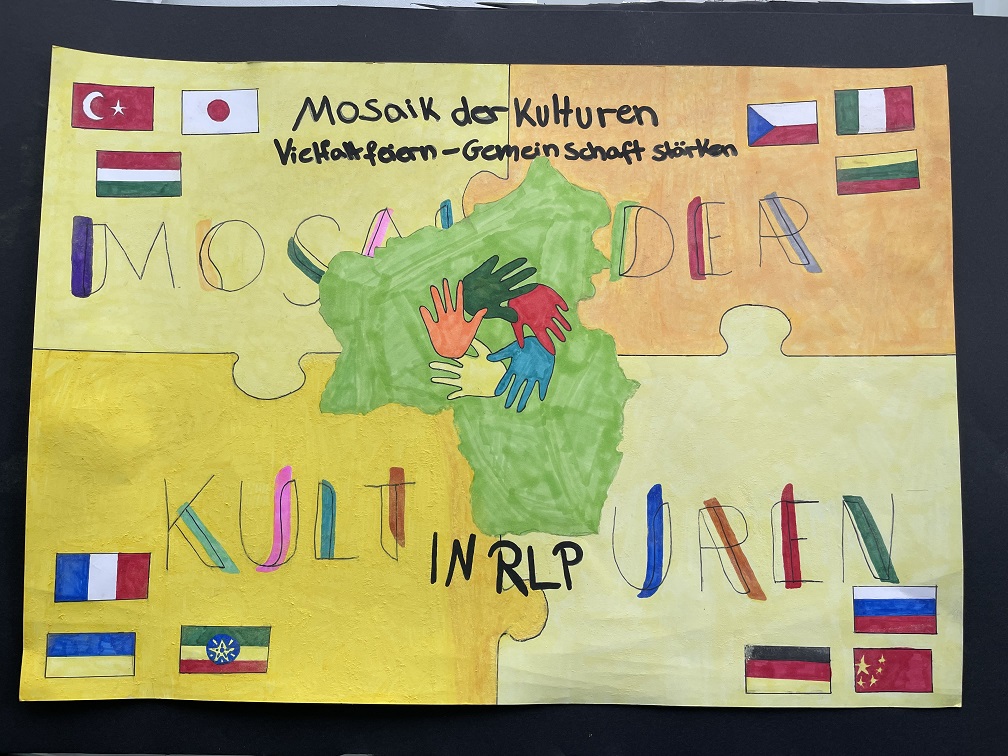 Mosaik der Kulturen
Vielfalt feiern – Gemeinschaft stärken
MOSAI DER
KULTUREN
IN RLP